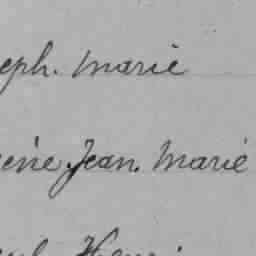 eph. Marie
ène Jean. Marie
Henri